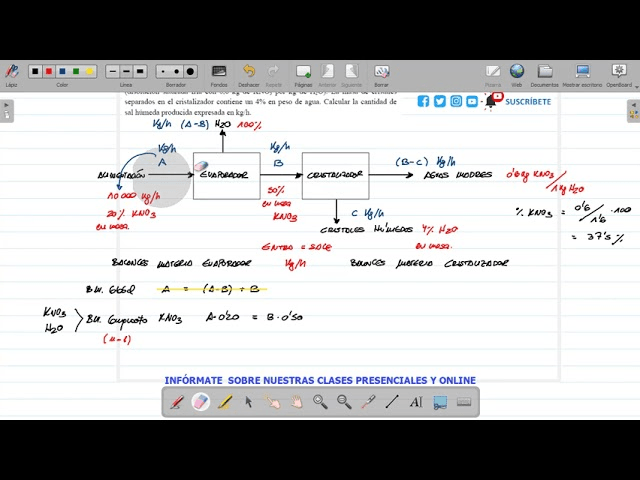 Lápiz
Color
Grosor
Borrador
Fondos
Deshacer
Rehacer
Páginas
Anterior
Siguiente
Borrar
Pizarra
Web
Documentos
Mostrar escritorio
OpenBoard
separados en el cristalizador contiene un 4% en peso de agua. Calcular la cantidad de
sal húmeda producida expresada en kg/h.
SUSCRÍBETE
Kg/h (A-B) H2O 100%
Kg/h
A
Kg/h
B
(B-C) Kg/h
ALIMENTACIÓN
EVAPORADOR
CRISTALIZADOR
AGUAS MADRES
0'6 kg KNO3 / 1 kg H2O
10 000 kg/h
20% KNO3
en masa
50%
en masa
KNO3
C Kg/h
CRISTALES HÚMEDOS
4% H2O
en masa
% KNO3 = 0'6 / 1'6 · 100
= 37'5 %
ENTRA = SALE
BALANCES MATERIA EVAPORADOR
Kg/h
BALANCES MATERIA CRISTALIZADOR
A = (A-B) + B
KNO3
H2O
KNO3 A·0'20 = B·0'50
(n-1)
INFÓRMATE SOBRE NUESTRAS CLASES PRESENCIALES Y ONLINE